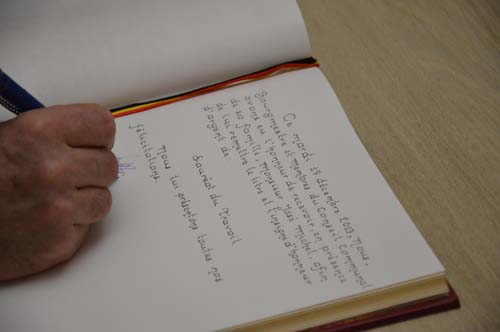 Ce mardi 17 décembre 2013, nous,
Bourgmestre et membres du Conseil Communal
avons eu l'honneur de recevoir, en présence
de sa famille, Monsieur José Michel, afin
de lui remettre le titre et l'insigne d'honneur
d'argent de
Lauréat du Travail
Nous lui présentons toutes nos
félicitations.